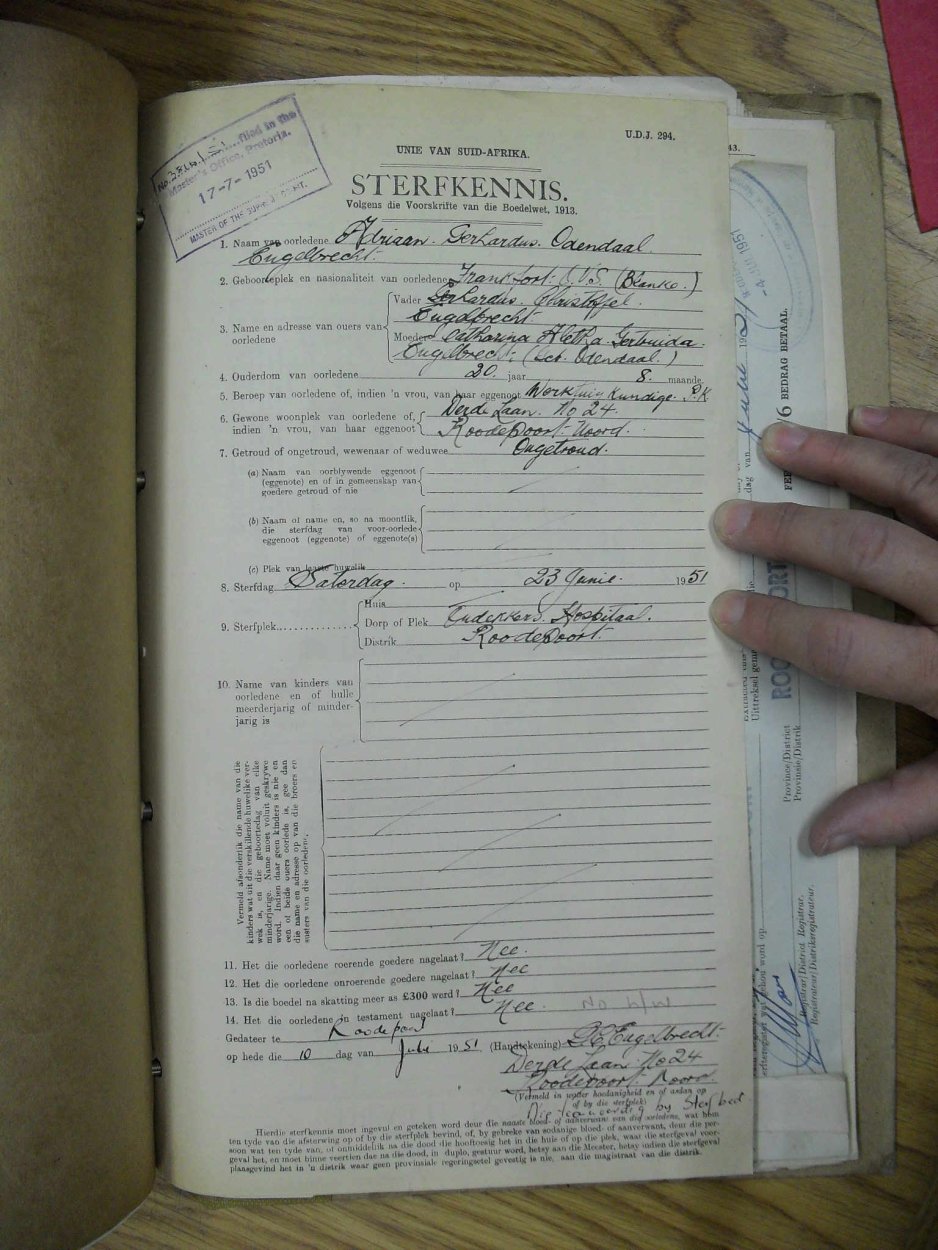 U.D.J. 294.
filed in the
Master's Office, Pretoria.
17-7-1951
MASTER OF THE SUPREME COURT.
UNIE VAN SUID-AFRIKA.
STERFKENNIS.
Volgens die Voorskrifte van die Boedelwet, 1913.
1. Naam van oorledene Adriaan Gerhardus Odendaal
Engelbrecht
2. Geboorteplek en nasionaliteit van oorledene Frankfort O.V.S. (Blanke.)
3. Name en adresse van ouers van oorledene
Vader Gerhardus Christoffel
Engelbrecht
Moeder Catharina Aletha Gertruida
Engelbrecht (geb. Odendaal.)
4. Ouderdom van oorledene 20 jaar 8 maande.
5. Beroep van oorledene of, indien 'n vrou, van haar eggenoot Werktuigkundige
6. Gewone woonplek van oorledene of,
indien 'n vrou, van haar eggenoot
Derde Laan No 24
Roodepoort Noord.
7. Getroud of ongetroud, wewenaar of weduwee Ongetroud.
(a) Naam van oorblywende eggenoot
(eggenote) en of in gemeenskap van
goedere getroud of nie
(b) Naam of name en, so na moontlik,
die sterfdag van voor-oorlede
eggenoot (eggenote) of eggenote(s)
(c) Plek van laaste huwelik
8. Sterfdag Saterdag op 23 Junie 1951
9. Sterfplek
Huis
Dorp of Plek Hospitaal.
Distrik Roodepoort.
10. Name van kinders van
oorledene en of hulle
meerderjarig of minder-
jarig is
Vermeld afsonderlik die name van die
kinders wat uit die verskillende huwelike ver-
wek is, en die geboortedag van elke
minderjarige. Name moet voluit geskrywe
word. Indien daar geen kinders is nie en
een of beide ouers oorlede is, gee dan
die name en adresse op van die broers en
susters van die oorledene.
11. Het die oorledene roerende goedere nagelaat? Nee.
12. Het die oorledene onroerende goedere nagelaat? Nee
13. Is die boedel na skatting meer as £300 werd? Nee
14. Het die oorledene 'n testament nagelaat? Nee.
Gedateer te Roodepoort
op hede die 10 dag van Julie 1951 (Handtekening) Engelbrecht
Derde Laan No 24
Roodepoort Noord
(Vermeld in watter hoedanigheid en of aldan op
of by die sterfplek)
by Sterfbed
Hierdie sterfkennis moet ingevul en geteken word deur die naaste bloed- of aanverwant van die oorledene, wat hom
ten tyde van die afsterwing op of by die sterfplek bevind, of, by gebreke van sodanige bloed- of aanverwant, deur die per-
soon wat ten tyde van, of onmiddellik na die dood die hooftoesig het in die huis of op die plek, waar die sterfgeval voor-
geval het, en moet binne veertien dae na die dood, in duplo, gestuur word, hetsy aan die Meester, hetsy indien die sterfgeval
plaasgevind het in 'n distrik waar geen provinsiale regeringsetel gevestig is nie, aan die magistraat van die distrik.
43.
BEDRAG BETAAL.
dag van
Province/District
Provinsie/Distrik
Registrar/District Registrar.
Registrateur/Distriksregistrateur.